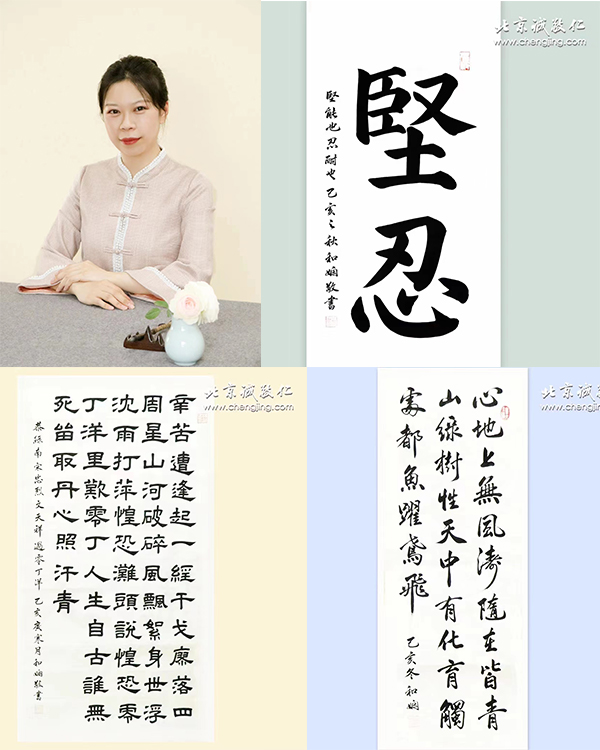 北京诚敬仁
www.chengjing.com
堅忍
堅能也忍耐也 己亥之秋和嫻敬書
北京诚敬仁
www.chengjing.com
辛苦遭逢起一經干戈寥落四
周星山河破碎風飄絮身世浮
沈雨打萍惶恐灘頭說惶恐零
丁洋里歎零丁人生自古誰無
死留取丹心照汗青
恭録南宋忠烈文天祥過零丁洋 己亥寒月和嫻敬書
北京诚敬
www.chengjing
心地上無風濤隨在皆青
山緑樹性天中有化育觸
處都魚躍鳶飛
己亥冬和嫻